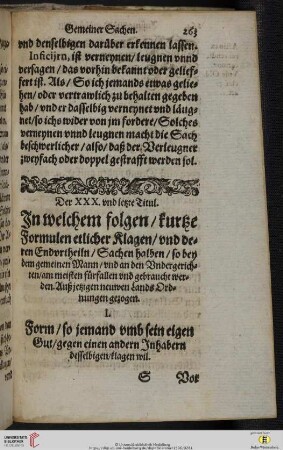 Gemeiner Sachen. 263
vnd denselbigen darüber erkennen lassen.
Inficijrn, ist verneynen/ leugnen vnnd
versagen / das vorhin bekannt oder gelief-
fert ist. Als / So ich jemands etwas gelie-
hen / oder vertrawlich zu behalten gegeben
hab / vnd er dasselbig verneynet vnd läug-
net/ so ichs wider von jm fordere/ Solches
verneynen vnnd leugnen macht die Sach
beschwerlicher / also / daß der Verleugner
zweyfach oder doppel gestrafft werden sol.
Der XXX. vnd letzte Titul.
In welchem folgen / kurtze
Formulen etlicher Klagen / vnd de-
ren Endvrtheiln / Sachen halben / so bey
dem gemeinen Mann / vnd an den Vndergerich-
ten / am meisten fürfallen vnd gebraucht wer-
den. Auß jetzigen neuwen Lands Ord-
nungen gezogen.
I.
Form / so jemand vmb sein eigen
Gut / gegen einen andern Inhabern
desselbigen / klagen wil.
S Vor